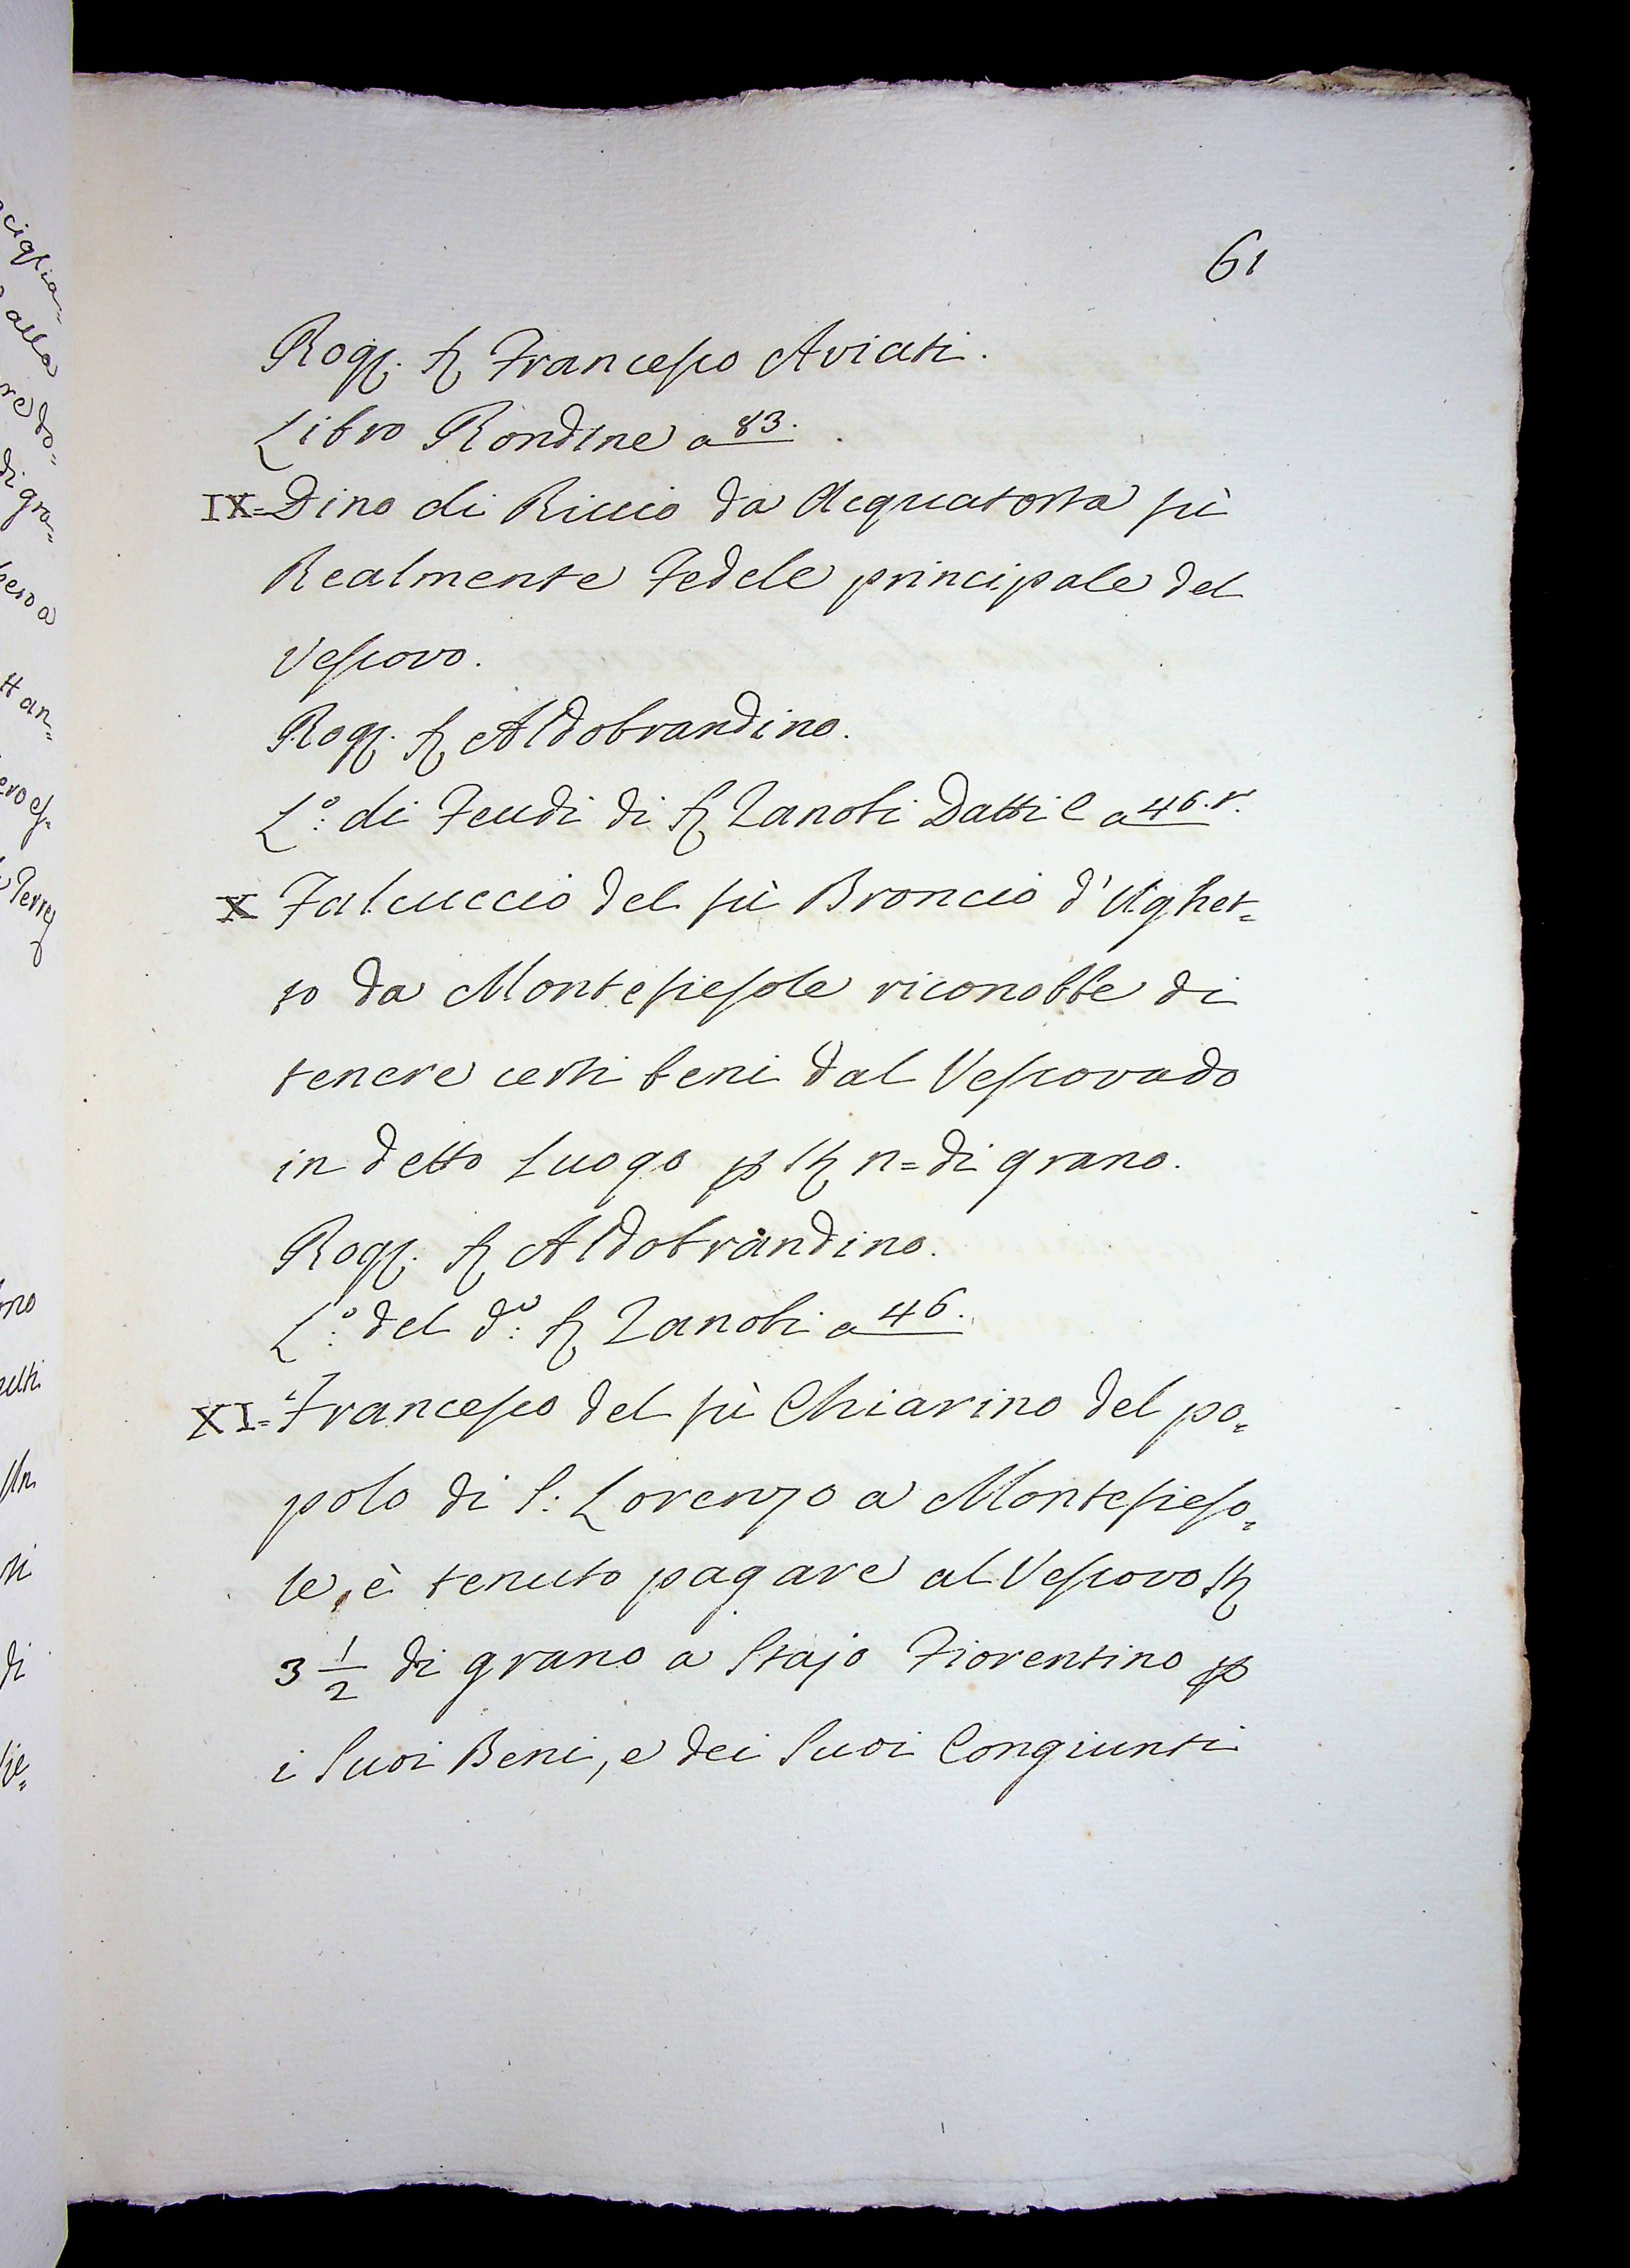 61
Rogᵗ. Sʳ Francesco Aviati.
Libro Rondine a 83.
IX= Dino di Riccio da Acquatorta fù
Realmente Fedele principale del
Vescovo.
Rogᵗ. Sʳ Aldobrandino.
L.º di Feudi di Sʳ Zanobi Datti C a 46. r.
X Falcuccio del fù Broncio d'Ughet=
to da Montefiesole riconobbe di
tenere certi beni dal Vescovado
in detto Luogo p Stᵃ n= di grano.
Rogᵗ. Sʳ Aldobrandino.
L.º del d.º Sʳ Zanobi a 46.
XI= Francesco del fù Chiarino del po=
polo di S: Lorenzo a Montefieso=
le, è tenuto pagare al Vescovo Stᵃ
3 1/2 di grano a Stajo Fiorentino p
i Suoi Beni, e dei Suoi Congiunti
ciglia=
alla
re do=
di gra=
pero a
tt an=
Terre
di